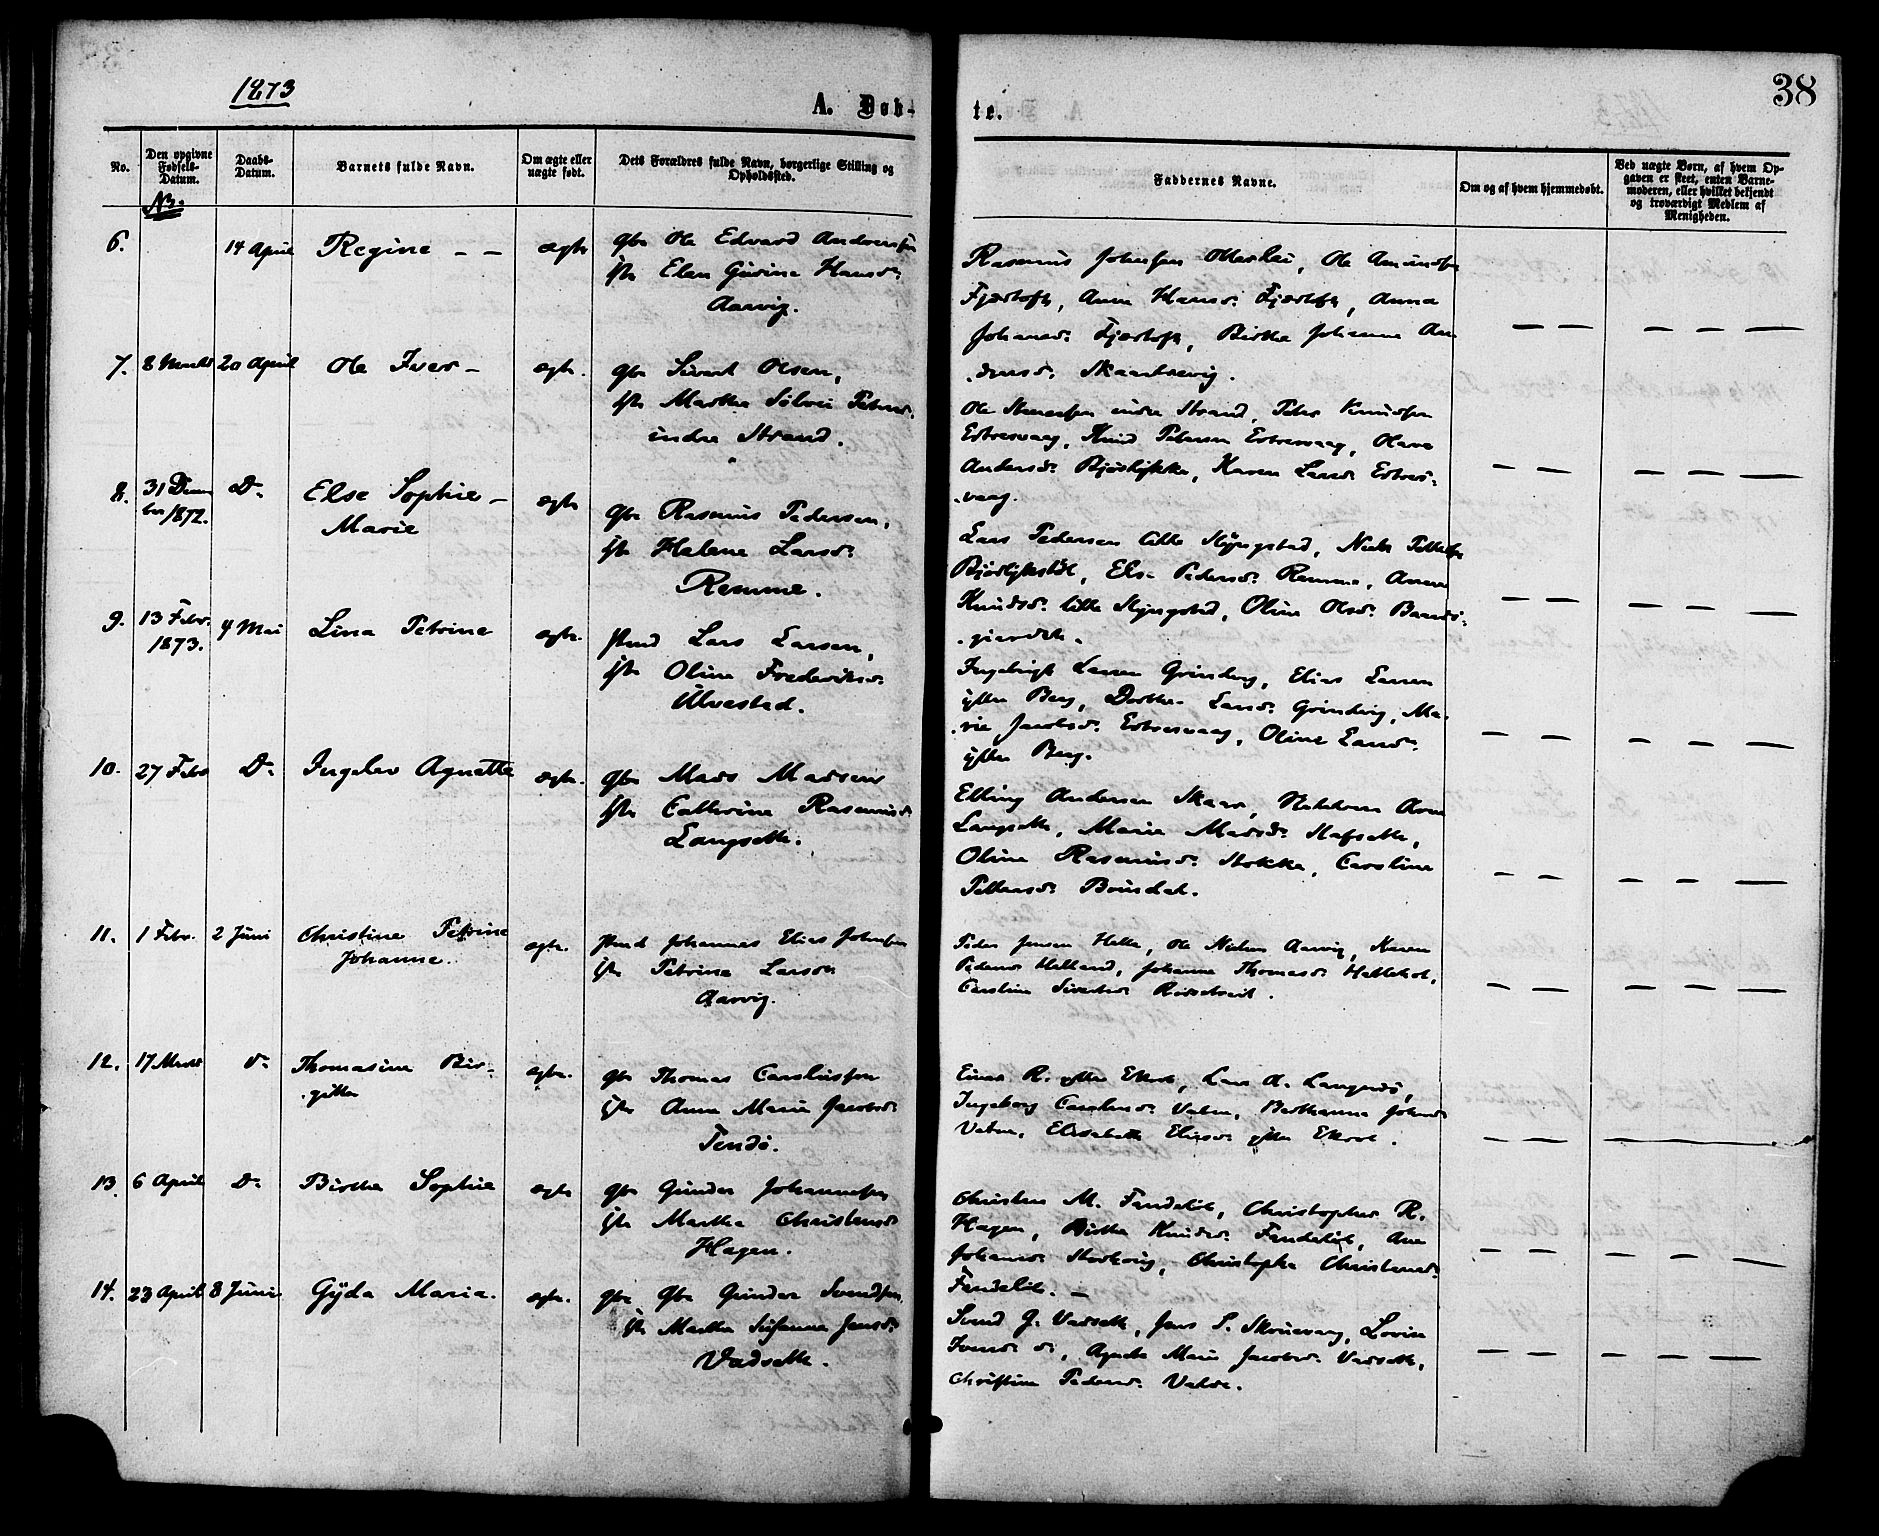 1873
A. Døb-
te.
38
No.
Den opgivne Fødsels-Datum.
Daabs-Datum.
Barnets fulde Navn.
Om ægte eller uægte født.
Dets Forældres fulde Navn, borgerlige Stilling og Opholdssted.
Faddernes Navne.
Om og af hvem hjemmedøbt.
Ved uægte Børn, af hvem Opgaven er skeet, enten Barnemoderen, eller hvilket bekjendt og troværdigt Medlem af Menigheden.
6.
14 April
Regine - -
ægte
gbr Ole Edvard Andreassen
Elen Gurine Hansd:
Aarvig.
Rasmus Johnsen Otterlei, Ole Amundsen
Fjærtoft, Anne Hansd: Fjærtoft, Anna
Johansd: Fjærtoft, Birthe Johanne An
dersd: Skaarhevig.
7.
8 Marts
20 April
Ole Iver -
ægte.
gbr Sivert Olsen,
Martha Sølvei Petersd:
indre Strand.
Ole indre Strand, Peter Knudsen
Estensvaag, Knud Petersen Estensvaag, Olave
Andersd: Bjørlykke, Karen Larsd: Estens-
vaag.
8.
31 Decem
ber 1872.
D:
Else Sophie -
Marie
ægte
gbr Rasmus Pedersen,
Helene Larsd:
Remme.
Lars Pedersen lille Slyngstad, Niels
Else Pedersd: Remme, Anne
Knudsd: lille Slyngstad, Oline Olsd: Brands-
gjerdet.
9.
13 Febr.
1873.
4 Mai
Lina Petrine
ægte.
Lars Larsen,
Oline Frederiksd:
Ulvestad.
Ingebrigt Larsen Grindvig, Elias Larsen
ytter Berg, Dorthe Larsd: Grindvig, Ma-
rie Jacobsd: Estensvaag, Oline Larsd:
ytter Berg.
10.
27 Febr
D:
Ingelev Agnette
ægte.
gbr Mads Madsen
Cathrine Rasmusd:
Langsette.
Elling Andersen Skaar, Arne
Langsette, Marie Madsd: Hafsette,
Oline Rasmusd: Stokke, Caroline
Pettersd:
11.
1 Febr.
2 Juni
Christine Petrine
Johanne.
ægte.
Johannes Elias Johnsen
Petrine Larsd:
Aarvig.
Peder Jensen Helle, Ole Nielsen Aarvig, Karen
Pedersd: Helland, Johanne Thomasd:
Caroline Sivertsd:
12.
17 Marts
d:
Thomasine Bir-
gitte
ægte.
gbr Thomas Carolussen
Anne Marie Jacobsd:
Fendø.
Einar R. ytter Ekrol, Lars A. Langnes,
Ingeborg Carolusd: Vatne, Berthanna Johnsd:
Vatne, Elisabeth Eliasd: ytter Ekrol.
13.
6 April
D:
Birthe Sophie
ægte
gbr Gunder Johannesen
Martha Christensd:
Hagen.
Christen M. Fendelid, Christopher R.
Hagen, Birthe Knudsd: Fendelid, Ane
Johansd: Christophe Christensd:
Fendelid. -
14.
23 April
8 Juni
Gyda Maria.
ægte.
gbr Gbr Gunder Svendsen,
Martha Susanna Jensd:
Vadsette.
Svend G. Vadsette, Jens P. Skruevaag, Lovise
Svensd: d:, Agnethe Marie Jacobsd: Vadsette,
Christine Pedersd: Vatne.